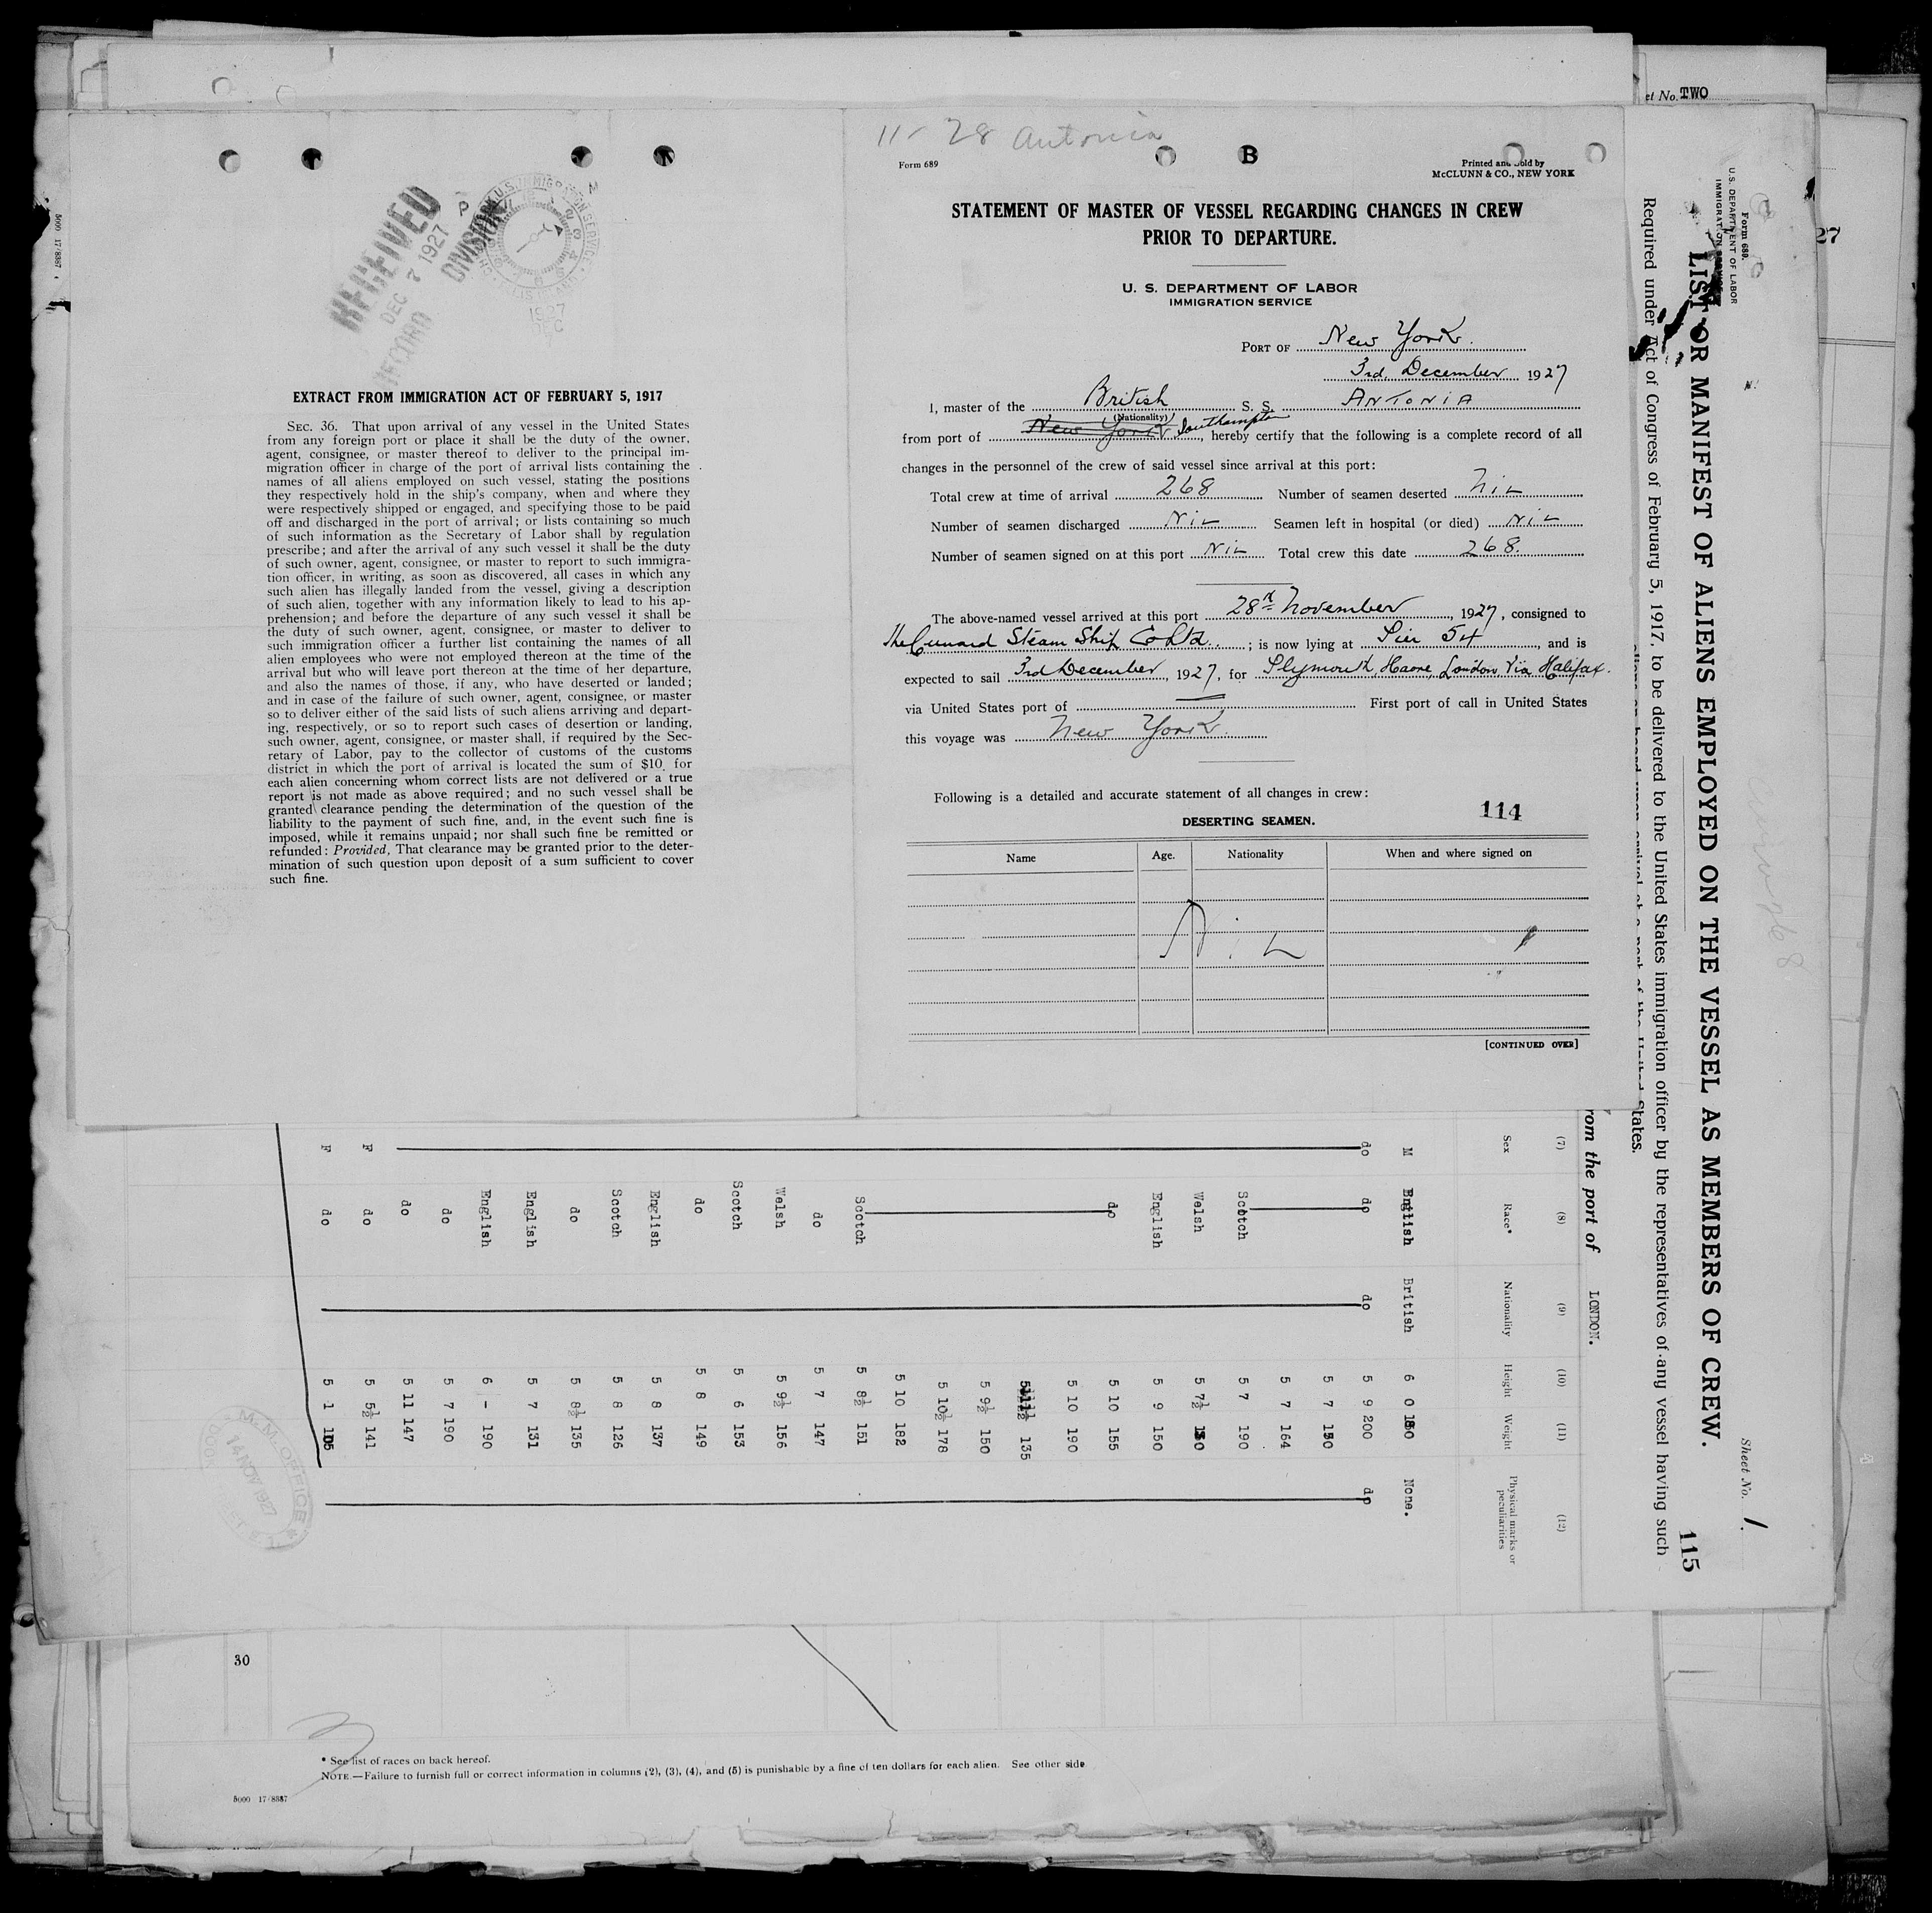 et No. TWO
11-28 Antonia
Form 689
B
Printed and Sold by
McCLUNN & CO., NEW YORK
STATEMENT OF MASTER OF VESSEL REGARDING CHANGES IN CREW
PRIOR TO DEPARTURE.
U. S. DEPARTMENT OF LABOR
IMMIGRATION SERVICE
PORT OF New York.
3rd. December 1927
I, master of the British S. S. ANTONIA
(Nationality)
from port of New York Southampton, hereby certify that the following is a complete record of all
changes in the personnel of the crew of said vessel since arrival at this port:
Total crew at time of arrival 268 Number of seamen deserted Nil
Number of seamen discharged Nil Seamen left in hospital (or died) Nil
Number of seamen signed on at this port Nil Total crew this date 268.
The above-named vessel arrived at this port 28th November, 1927, consigned to
The Cunard Steam Ship Co Ltd.; is now lying at Pier 54, and is
expected to sail 3rd December, 1927, for Plymouth, Havre, London Via Halifax.
via United States port of First port of call in United States
this voyage was New York.
Following is a detailed and accurate statement of all changes in crew:
114
DESERTING SEAMEN.
Name Age. Nationality When and where signed on
Nil
[CONTINUED OVER]
RECEIVED
DEC 7 1927
RECORD DIVISION
U.S. IMMIGRATION SERVICE
1927
DEC
EXTRACT FROM IMMIGRATION ACT OF FEBRUARY 5, 1917
SEC. 36. That upon arrival of any vessel in the United States
from any foreign port or place it shall be the duty of the owner,
agent, consignee, or master thereof to deliver to the principal im-
migration officer in charge of the port of arrival lists containing the
names of all aliens employed on such vessel, stating the positions
they respectively hold in the ship's company, when and where they
were respectively shipped or engaged, and specifying those to be paid
off and discharged in the port of arrival; or lists containing so much
of such information as the Secretary of Labor shall by regulation
prescribe; and after the arrival of any such vessel it shall be the duty
of such owner, agent, consignee, or master to report to such immigra-
tion officer, in writing, as soon as discovered, all cases in which any
such alien has illegally landed from the vessel, giving a description
of such alien, together with any information likely to lead to his ap-
prehension; and before the departure of any such vessel it shall be
the duty of such owner, agent, consignee, or master to deliver to
such immigration officer a further list containing the names of all
alien employees who were not employed thereon at the time of the
arrival but who will leave port thereon at the time of her departure,
and also the names of those, if any, who have deserted or landed;
and in case of the failure of such owner, agent, consignee, or master
so to deliver either of the said lists of such aliens arriving and depart-
ing, respectively, or so to report such cases of desertion or landing,
such owner, agent, consignee, or master shall, if required by the Sec-
retary of Labor, pay to the collector of customs of the customs
district in which the port of arrival is located the sum of $10 for
each alien concerning whom correct lists are not delivered or a true
report is not made as above required; and no such vessel shall be
granted clearance pending the determination of the question of the
liability to the payment of such fine, and, in the event such fine is
imposed, while it remains unpaid; nor shall such fine be remitted or
refunded: Provided, That clearance may be granted prior to the deter-
mination of such question upon deposit of a sum sufficient to cover
such fine.
5000 17/8387
27
Form 680.
U.S. DEPARTMENT OF LABOR
IMMIGRATION SERVICE
Sheet No. 1.
115
LIST OR MANIFEST OF ALIENS EMPLOYED ON THE VESSEL AS MEMBERS OF CREW.
Required under Act of Congress of February 5, 1917, to be delivered to the United States immigration officer by the representatives of any vessel having such
aliens on board upon arrival at a port of the United States.
rom the port of LONDON.
(7) (8) (9) (10) (11) (12)
Sex Race* Nationality Height Weight Physical marks or peculiarities
M English British 6 0 180 None.
do do do 5 9 200 do
5 7 150
5 7 164
Scotch 5 7 190
Welsh 5 7½
English 5 9 150
do 5 10 155
5 10 190
5 11½ 135
5 9½ 150
5 10½ 178
5 10 182
Scotch 5 8½ 151
do 5 7 147
Welsh 5 9½ 156
Scotch 5 6 153
do 5 8 149
English 5 8 137
Scotch 5 8 126
do 5 8½ 135
English 5 7 131
English 6 - 190
do 5 7 190
do 5 11 147
F do 5 5½ 141
F do 5 1 105
M.M. OFFICE
14 NOV 1927
30
3
* See list of races on back hereof.
NOTE.—Failure to furnish full or correct information in columns (2), (3), (4), and (5) is punishable by a fine of ten dollars for each alien. See other side
5000 17/8387